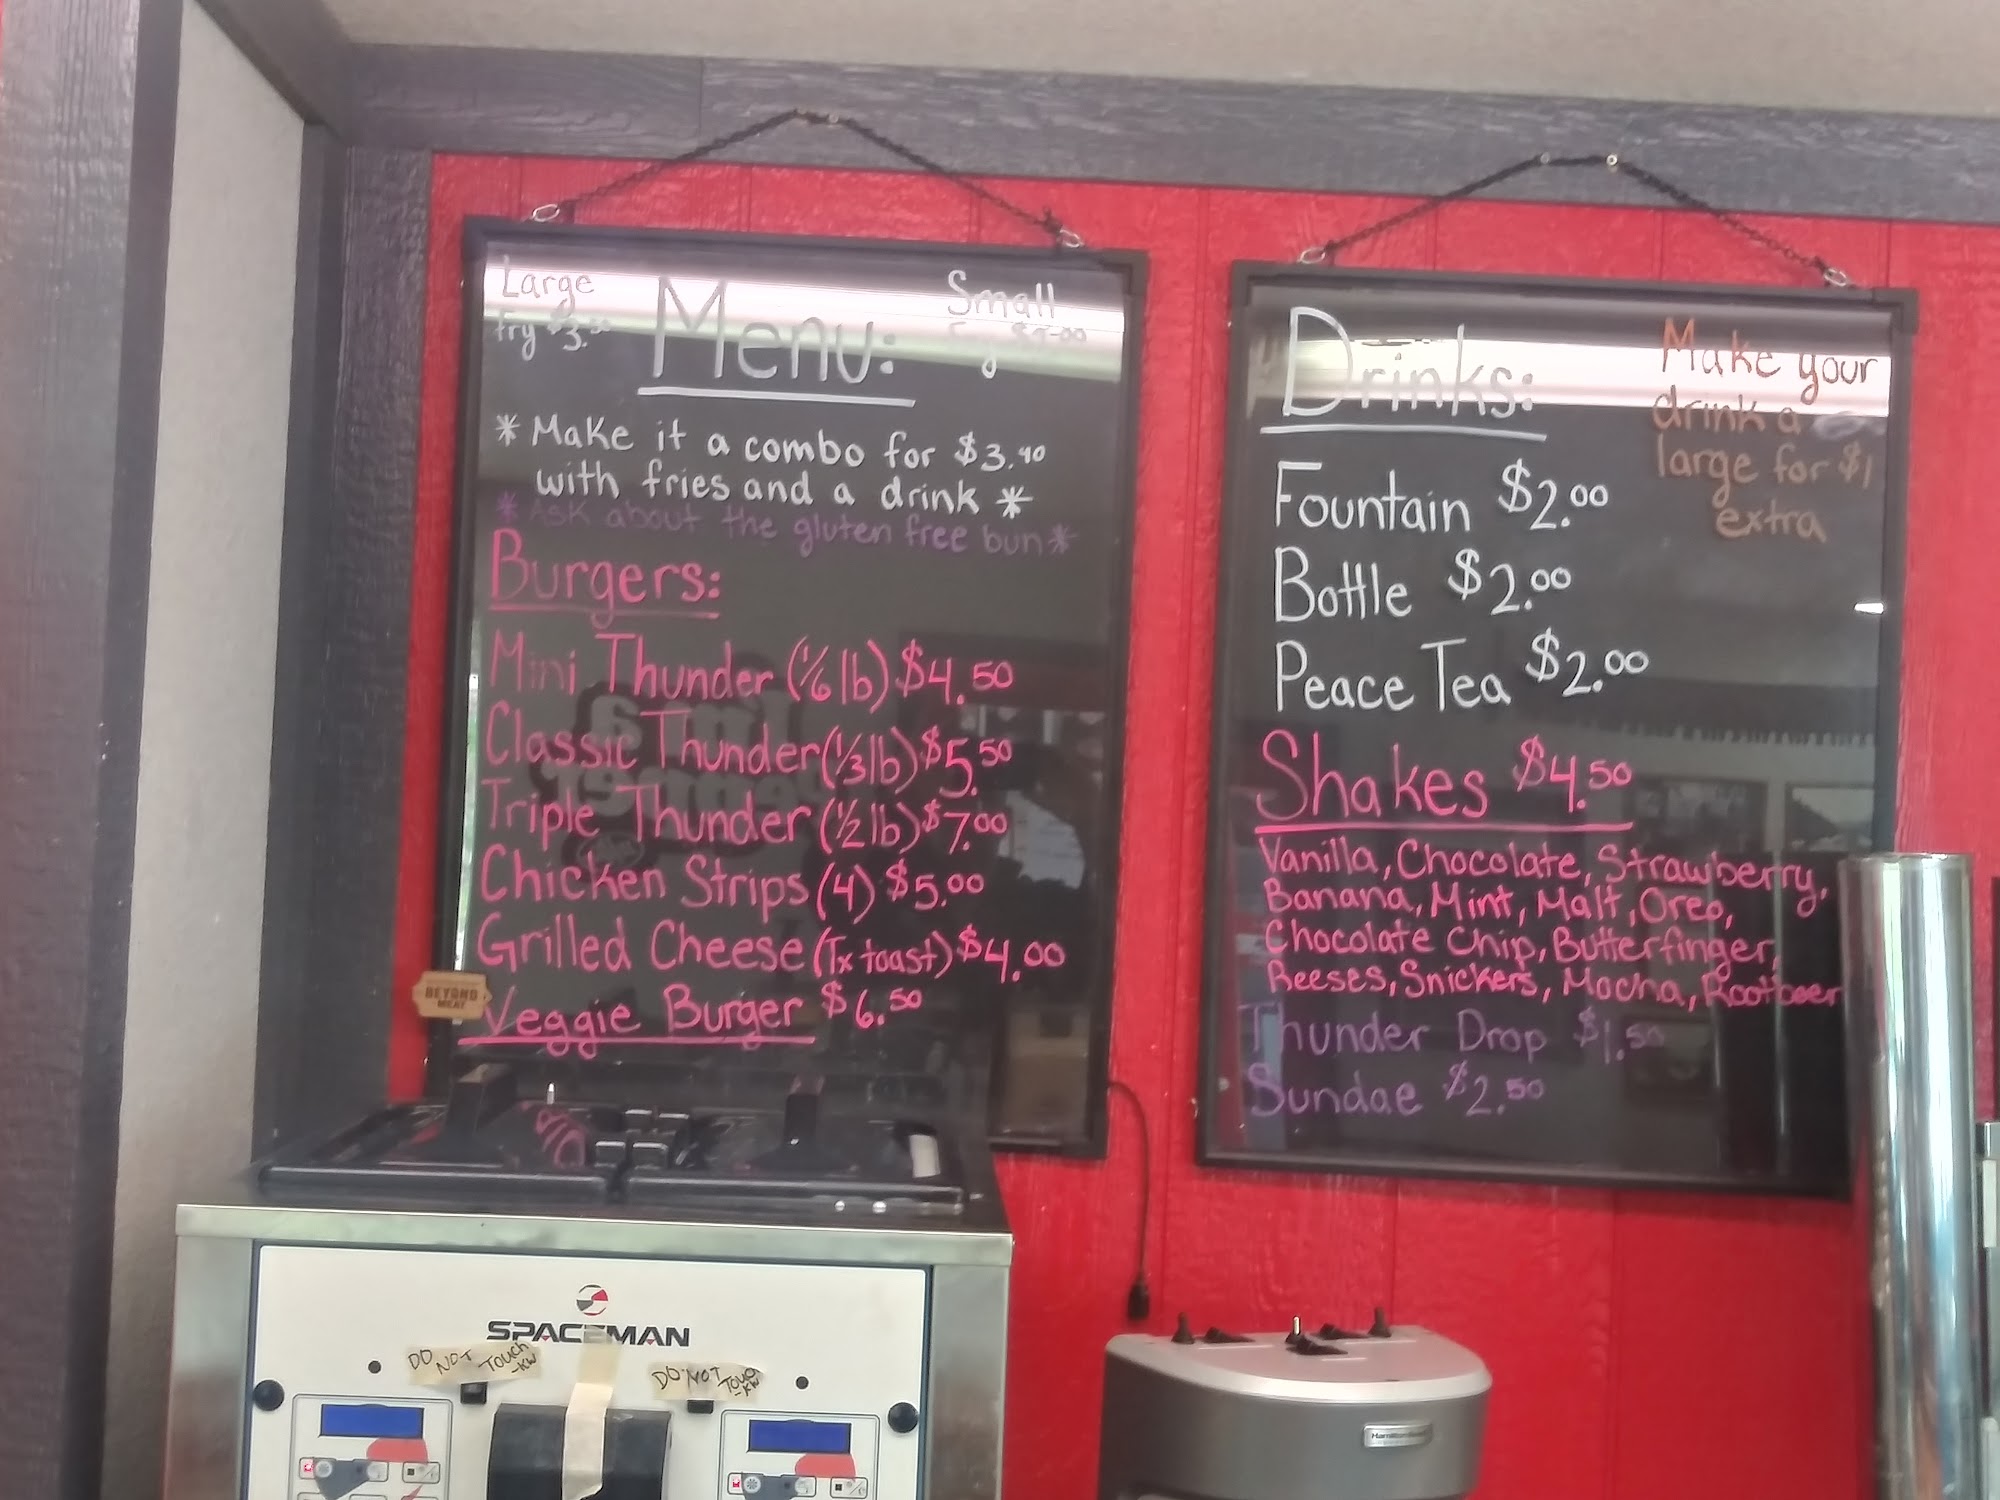 Large
fry $3.
Menu:
Small
*Make it a combo for $3.40
with fries and a drink *
*Ask about the gluten free bun*
Burgers:
Mini Thunder (1/6 lb) $4.50
Classic Thunder (1/3 lb) $5.50
Triple Thunder (1/2 lb) $7.00
Chicken Strips (4) $5.00
Grilled Cheese (Tx toast) $4.00
Veggie Burger $6.50
BEYOND
MEAT
Drinks:
Make your
drink a
large for $1
extra
Fountain $2.00
Bottle $2.00
Peace Tea $2.00
Shakes $4.50
Vanilla, Chocolate, Strawberry,
Banana, Mint, Malt, Oreo,
Chocolate Chip, Butterfinger,
Reeses, Snickers, Mocha, Rootbeer
Thunder Drop $1.50
Sundae $2.50
SPACEMAN
DO NOT Touch
-KW
DO NOT Touc
-KW
Hamilton Beach